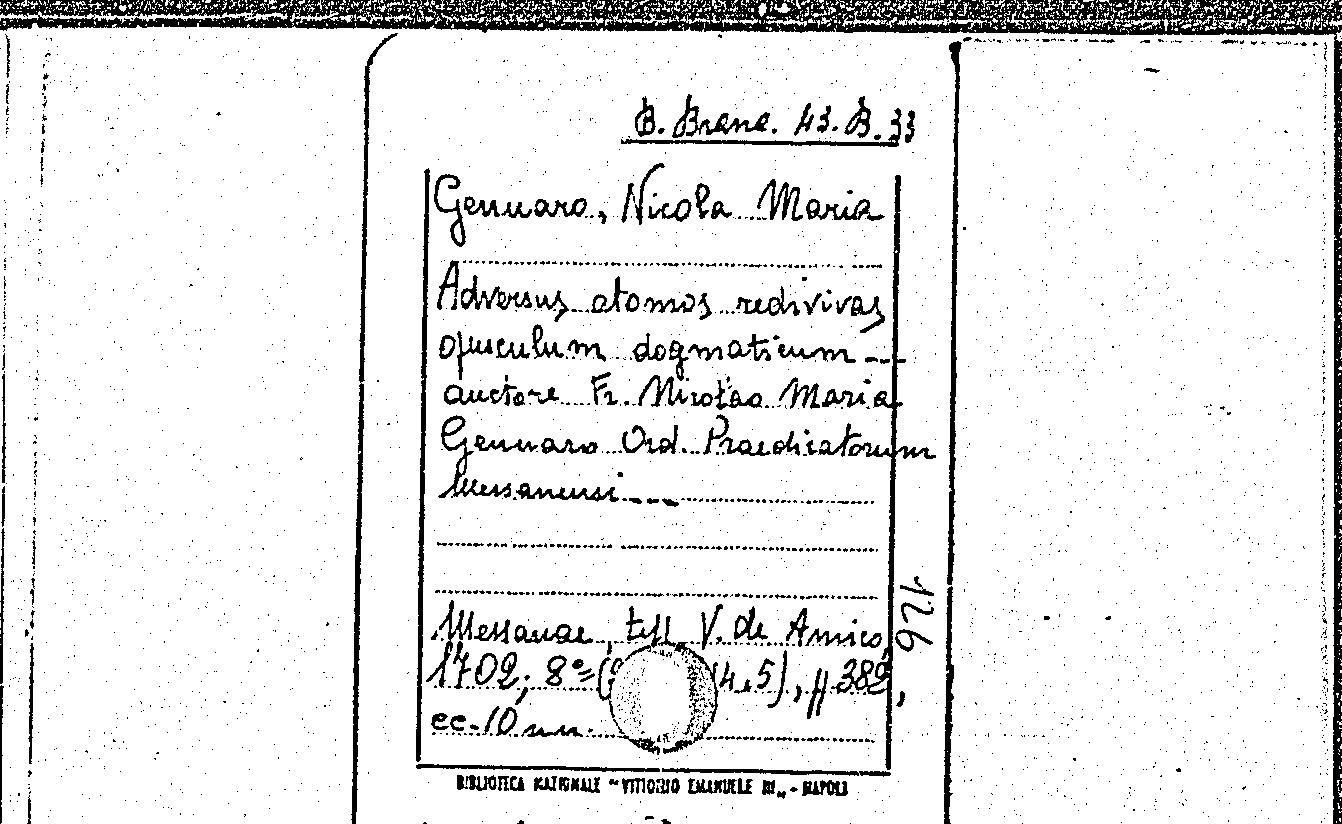 B. Branc. 43. B. 33
Gennaro, Nicola Maria
Adversus atomos redivivas
opusculum dogmaticum ---
auctore Fr. Nicolao Maria
Gennaro Ord. Praedicatorum
Messanensi ---
Messanae, typ. V. de Amico,
1702; 8° ( 14,5), pp 382,
cc. 10 nn.
126
BIBLIOTECA NAZIONALE "VITTORIO EMANUELE III" - NAPOLI